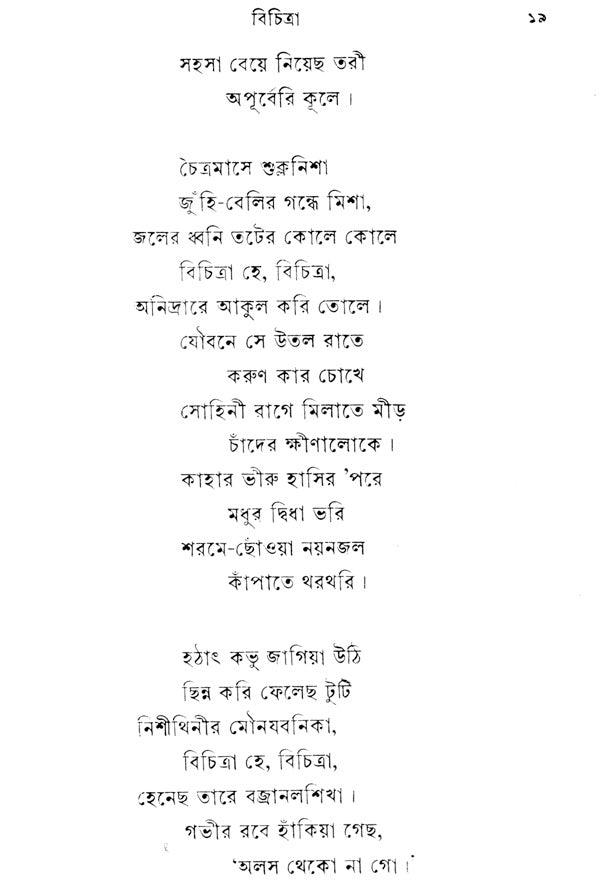 বিচিত্রা ১৯
সহসা বেয়ে নিয়েছ তরী
অপূর্বেরি কূলে।
চৈত্রমাসে শুক্লনিশা
জুঁহি-বেলির গন্ধে মিশা,
জলের ধ্বনি তটের কোলে কোলে
বিচিত্রা হে, বিচিত্রা,
অনিদ্রারে আকুল করি তোলে।
যৌবনে সে উতল রাতে
করুণ কার চোখে
সোহিনী রাগে মিলাতে মীড়
চাঁদের ক্ষীণালোকে।
কাহার ভীরু হাসির ’পরে
মধুর দ্বিধা ভরি
শরমে-ছোঁওয়া নয়নজল
কাঁপাতে থরথরি।
হঠাৎ কভু জাগিয়া উঠি
ছিন্ন করি ফেলেছ টুটি
নিশীথিনীর মৌনযবনিকা,
বিচিত্রা হে, বিচিত্রা,
হেনেছ তারে বজ্রানলশিখা।
গভীর রবে হাঁকিয়া গেছ,
‘অলস থেকো না গো।’